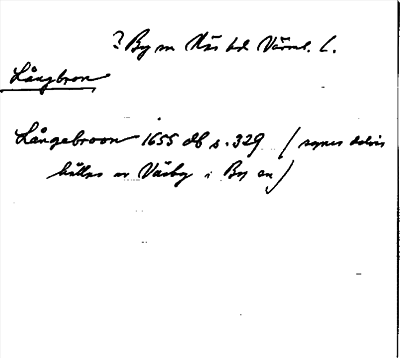 ? By sn Näs hd Värml. l.
Långbron
Långebroon 1655 db s. 329 (synes delvis
hållas av Väsby i By sn)